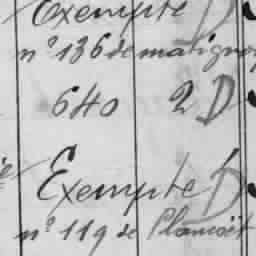 Exempté D
n° 136 de matignon
640 2 D
Exempté D
n° 119 de Plancoët